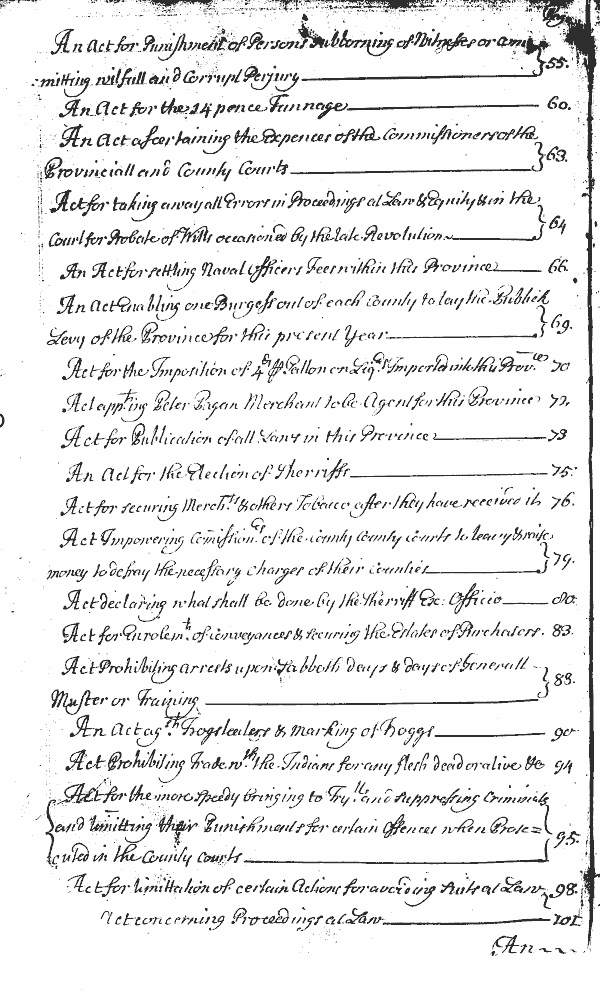 An Act for Punishment of Persons Subborning of Witnesses or com=
mitting wilfull and Corrupt Perjury 55.
An Act for the 14 pence Tunnage 60.
An Act ascertaining the Expences of the Commissioners of the
Provinciall and County Courts 63.
Act for taking away all Errors in Proceedings at Law & Equity & in the
Court for Probate of Wills occasioned by the late Revolution 64
An Act for settling Naval Officers Fees within this Province 66.
An Act Enabling one Burgess out of each County to lay the Publick
Levy of the Province for this present Year 69.
Act for the Imposition of 4d p Gallon on Liqrs Imported into this Provce 70
Act appting Peter Pagan Merchant to be Agent for this Province 72.
Act for Publication of all Laws in this Province 73
An Act for the Election of Sherriffs 75.
Act for securing Merchts & others Tobacco after they have received it 76.
Act Impowering Comissionrs of the County County Courts to leavy & raise
money to defray the necessary Charges of their Counties 79.
Act declaring what shall be done by the Sherriff Ex: Officio 80.
Act for Enrolemt of Conveyances & securing the Estates of Purchasers. 83.
Act Prohibiting arrests upon Sabboth days & days of Generall
Muster or Training 88.
An Act agst Hogstealers & Marking of Hoggs 90
Act Prohibiting Trade wth the Indians for any flesh dead or alive &c 94
Act for the more speedy bringing to Tryll and suppressing Criminals
and limitting their Punishments for certain Offences when Prose=
cuted in the County Courts 95.
Act for limittation of certain Actions for avoiding Suits at Law 98.
Act concerning Proceedings at Law 101
An